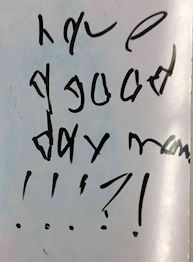 have
a good
day mam
!!!?!